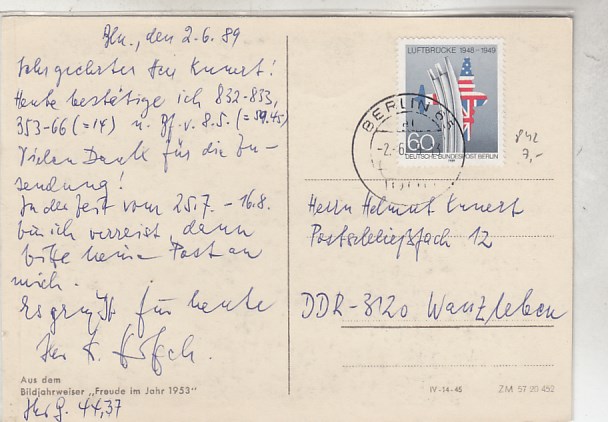 Bln., den 2.6.89
Sehr geehrter Herr Kunert!
Heute bestätige ich 832-833,
353-66 (=14) u. Bf. v. 8.5. (= 59.45)
Vielen Dank für die Zu-
sendung!
In der Zeit vom 25.7. - 16.8.
bin ich verreist, dann
bitte keine Post an
mich.
Es grüßt für heute
Ihr K.
Aus dem
Bildjahrweiser „Freude im Jahr 1953"
44,37
LUFTBRÜCKE 1948-1949
60
DEUTSCHE BUNDESPOST BERLIN
BERLIN
-2.-6.
842
7,-
Herrn Helmut Kunert
Postschließfach 12
DDR-3120 Wanzleben
IV-14-45
ZM 57 20 452